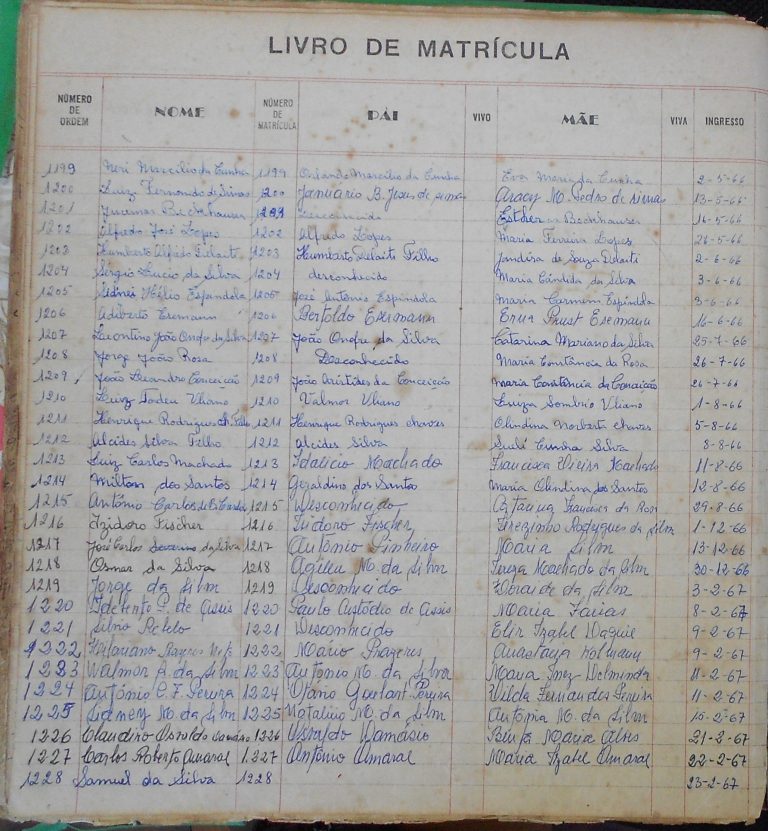 LIVRO DE MATRÍCULA
NÚMERO DE ORDEM NOME NÚMERO DE MATRÍCULA PÁI VIVO MÃE VIVA INGRESSO
1199 Neri Marcilio da Cunha 1199 Orlando Marcilio da Cunha Eva Maria da Cunha 2-5-66
1200 Luiz Fernando de 1200 Januário B. Jesus de Aracy M. Pedro de 13-5-66
1201 Juvenal Beckhauser 1201 Desconhecido Esther Beckhauser 16-5-66
1202 Alfredo José Lopes 1202 Alfredo Lopes Maria Ferreira Lopes 26-5-66
1203 Humberto Alfredo 1203 Humberto Filho Jandira de Souza 2-6-66
1204 Sérgio Lucio da Silva 1204 desconhecido Maria Cândida da Silva 3-6-66
1205 Sidnei Hélio Espindola 1205 José Antonio Espindola Maria Carmem Espindola 3-6-66
1206 Adiberto Esemann 1206 Bertoldo Esemann Erna Prust Esemann 16-6-66
1207 João Onofre da Silva 1207 João Onofre da Silva Catarina Mariano da Silva 25-7-66
1208 Jorge João Rosa 1208 Desconhecido Maria Constância da Rosa 26-7-66
1209 João Leandro Conceição 1209 João Aristides da Conceição Maria Constância da Conceição 26-7-66
1210 Luiz Tadeu Uliano 1210 Valmor Uliano Luiza Sombrio Uliano 1-8-66
1211 Henrique Rodrigues Ch. Filho 1211 Henrique Rodrigues chaves Olindina Norberto chaves 5-8-66
1212 Alcides Silva Filho 1212 Alcides Silva Sueli Cunha Silva 8-8-66
1213 Luiz Carlos Machado 1213 Idalicio Machado Francisca Vieira Machado 11-8-66
1214 Milton dos Santos 1214 Geraldino dos Santos Maria Olindina dos Santos 12-8-66
1215 Antônio Carlos 1215 Desconhecido Francisca da Rosa 29-8-66
1216 Izidoro Fischer 1216 Isidoro Fischer Terezinha Rodrigues da Silva 1-12-66
1217 José Carlos Severino da Silva 1217 Antônio Pinheiro Maria Silva 13-12-66
1218 Osmar da Silva 1218 M. da Silva Tereza Machado da Silva 30-12-66
1219 Jorge da Silva 1219 Desconhecido da Silva 3-2-67
1220 de Assis 1220 Paulo Custódio de Assis Maria Farias 8-2-67
1221 Silvio Rebelo 1221 Desconhecido Izabel 9-2-67
1222 Prazeres 1222 Mário Prazeres Anastacia 9-2-67
1223 Walmor A. da Silva 1223 Antonio M. da Silva Maria Inez 11-2-67
1224 Antônio C. F. Pereira 1224 Otávio Pereira Wilda Fernandes Pereira 11-2-67
1225 Sidney M. da Silva 1225 Natalicio M. da Silva Antonia M. da Silva 15-2-67
1226 Claudino Osvaldo Damásio 1226 Osvaldo Damásio Maria Alves 21-2-67
1227 Carlos Roberto Amaral 1.227 Antônio Amaral Maria Izabel Amaral 22-2-67
1228 Samuel da Silva 1228 23-2-67